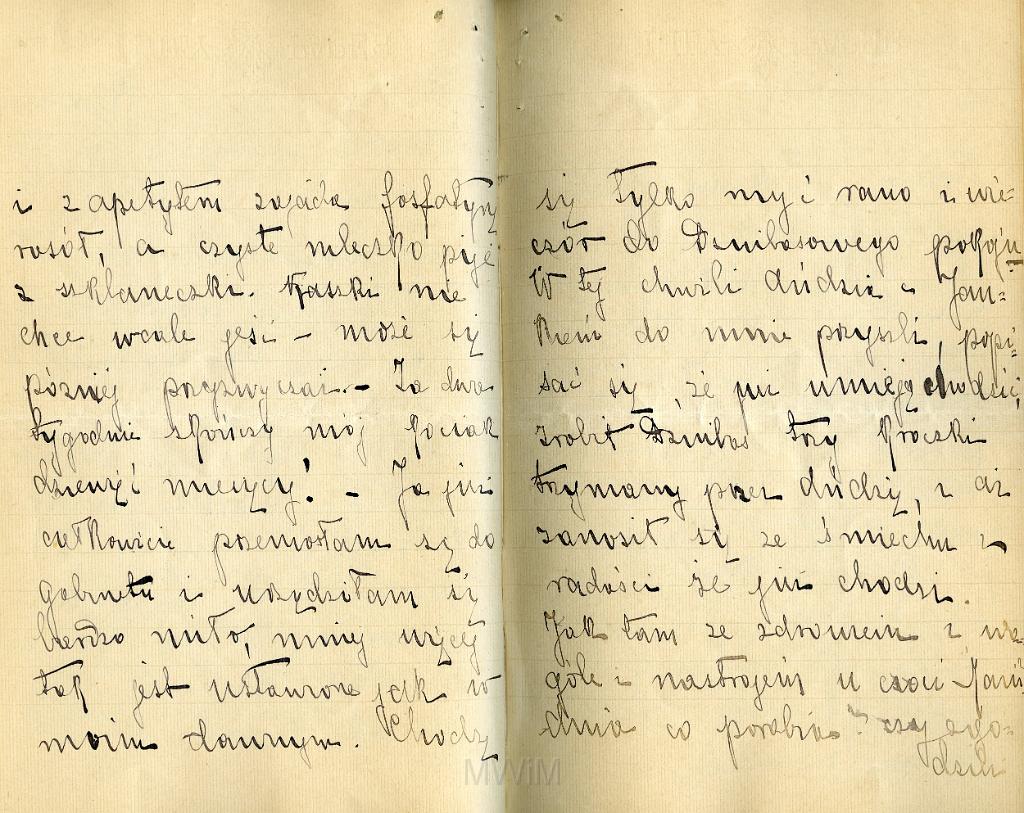 i z apetytem zajada fosfatynę
rosół, a czyste mleczko pije
z szklaneczki. Kaszki nie
chce wcale jeść – może się
później przyzwyczai. – Za dwa
tygodnie skończy mój kociak
dziewięć miesięcy! – Ja już
całkowicie przeniosłam się do
gabinetu i urządziłam się
bardzo miło, mniej więcej
tak jest ustawione jak w
moim dawnym. Chodzę
się tylko myć rano i wie=
czór do Dzubasowego pokoju
W tej chwili dudzia z Jan=
kiem do mnie przyszli, popi=
sać się, że już umieją chodzić,
zrobił Dzubas trzy kroczki
trzymany przez dudzię, i aż
zanosił się ze śmiechu i
radości że już chodzi.
Jak tam ze zdrowiem i wo=
góle z nastrojem u cioci
dnia co porabia? czy zgo=
dzili
MWiM